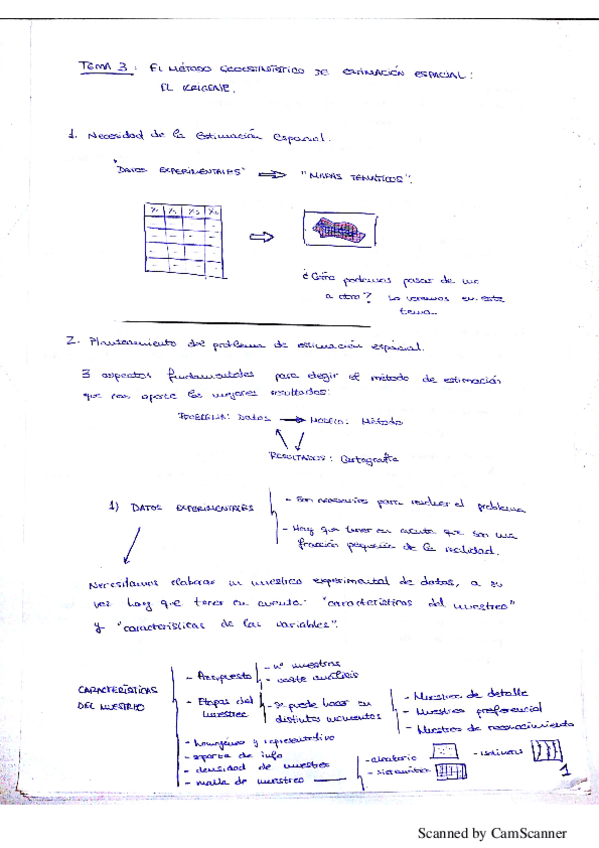 TEMA 3: EL MÉTODO GEOESTADÍSTICO DE ESTIMACIÓN ESPACIAL:
EL KRIGEAJE.
1. Necesidad de la Estimación Espacial.
"DATOS EXPERIMENTALES" ⇒ "MAPAS TEMÁTICOS".
¿Cómo podemos pasar de uno
a otro? Lo veremos en este
tema...
2. Planteamiento del problema de estimación espacial.
3 aspectos fundamentales para elegir el método de estimación
que nos aporte los mejores resultados:
PROBLEMA: Datos → MODELO: Método
RESULTADOS: Cartografía
1) DATOS EXPERIMENTALES
- Son necesarios para resolver el problema
- Hay que tener en cuenta que son una
fracción pequeña de la realidad.
Necesitamos elaborar un muestreo experimental de datos, a su
vez hay que tener en cuenta: "características del muestreo"
y "características de las variables".
CARACTERÍSTICAS
DEL MUESTREO
- Presupuesto
- nº muestras
- coste análisis
- Etapas del
muestreo
- se puede hacer en
distintos momentos
- Muestreo de detalle
- Muestreo preferencial
- Muestreo de reconocimiento
- homogéneo y representativo
- aporte de info
- densidad de muestreo
- malla de muestreo
- aleatorio
- sistemático
1
Scanned by CamScanner